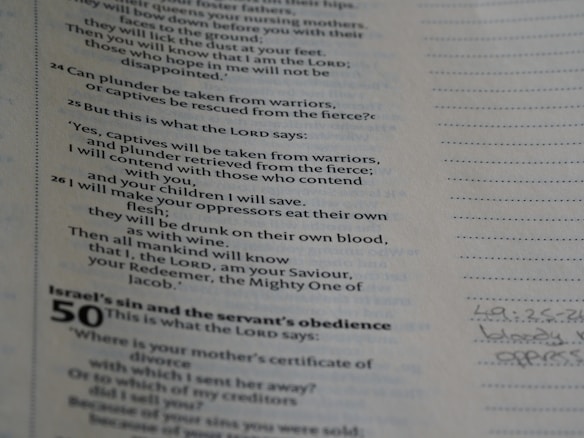 on their hips.
your foster fathers,
their queens your nursing mothers.
They will bow down before you with their
faces to the ground;
they will lick the dust at your feet.
Then you will know that I am the LORD;
those who hope in me will not be
disappointed.'
24 Can plunder be taken from warriors,
or captives be rescued from the fierce?c
25 But this is what the LORD says:
'Yes, captives will be taken from warriors,
and plunder retrieved from the fierce;
I will contend with those who contend
with you,
and your children I will save.
26 I will make your oppressors eat their own
flesh;
they will be drunk on their own blood,
as with wine.
Then all mankind will know
that I, the LORD, am your Saviour,
your Redeemer, the Mighty One of
Jacob.'
Israel's sin and the servant's obedience
50 This is what the LORD says:
'Where is your mother's certificate of
divorce
with which I sent her away?
Or to which of my creditors
did I sell you?
Because of your sins you were sold;
because of your
49:25-26
bloody
oppress